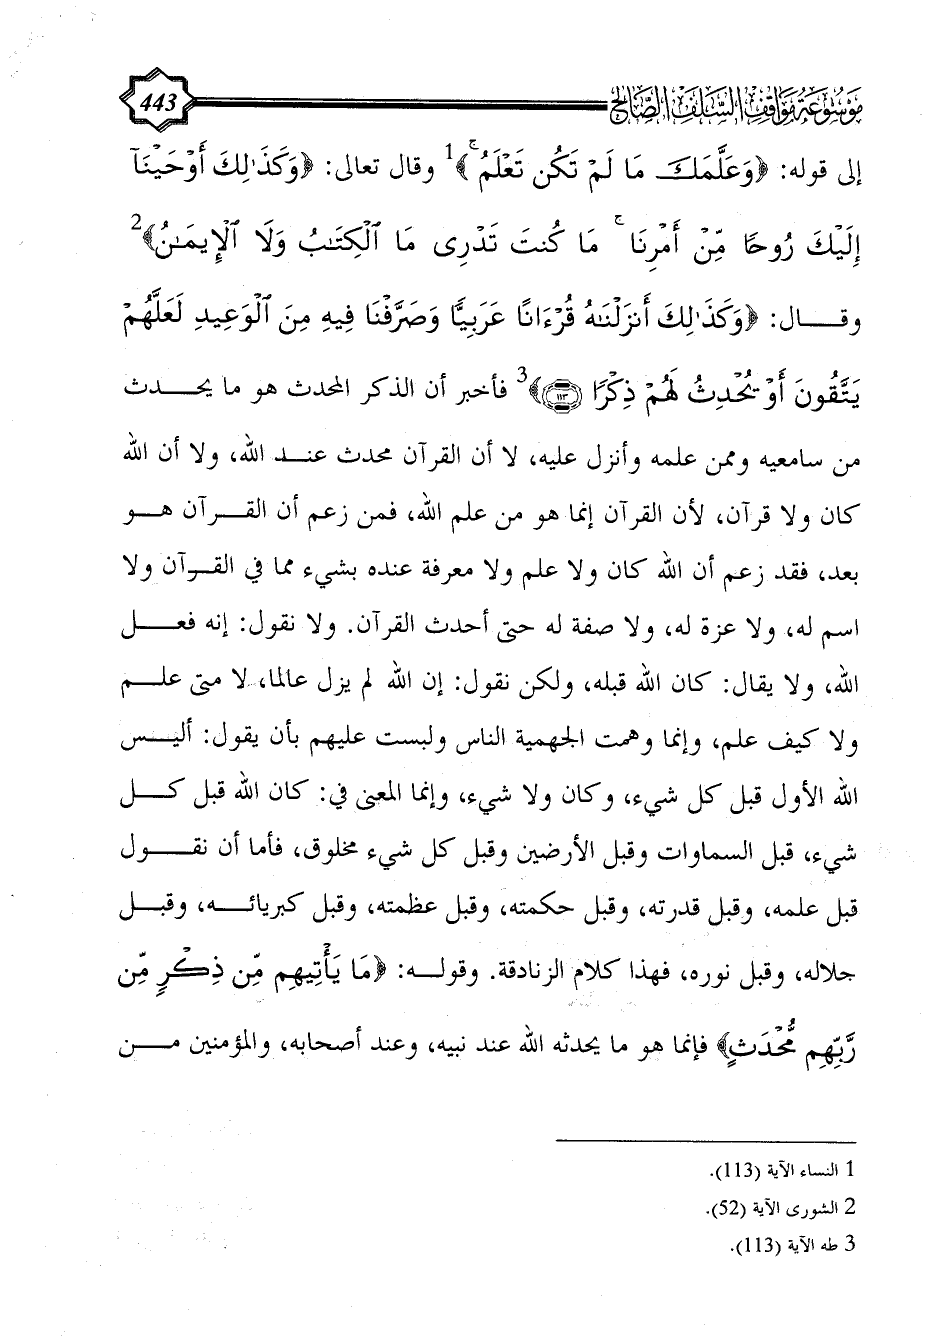 موسوعة مواقف السلف الصالح 443
إلى قوله: ﴿وَعَلَّمَكَ مَا لَمْ تَكُن تَعْلَمُ ۚ﴾1 وقال تعالى: ﴿وَكَذَٰلِكَ أَوْحَيْنَآ
إِلَيْكَ رُوحًا مِّنْ أَمْرِنَا ۚ مَا كُنتَ تَدْرِى مَا ٱلْكِتَٰبُ وَلَا ٱلْإِيمَٰنُ﴾2
وقـــال: ﴿وَكَذَٰلِكَ أَنزَلْنَٰهُ قُرْءَانًا عَرَبِيًّا وَصَرَّفْنَا فِيهِ مِنَ ٱلْوَعِيدِ لَعَلَّهُمْ
يَتَّقُونَ أَوْ يُحْدِثُ لَهُمْ ذِكْرًا ﴿١١٣﴾﴾3 فأخبر أن الذكر المحدث هو ما يحـــدث
من سامعيه وممن علمه وأنزل عليه، لا أن القرآن محدث عنـــد الله، ولا أن الله
كان ولا قرآن، لأن القرآن إنما هو من علم الله، فمن زعم أن القـــرآن هـــو
بعد، فقد زعم أن الله كان ولا علم ولا معرفة عنده بشيء مما في القـرآن ولا
اسم له، ولا عزة له، ولا صفة له حتى أحدث القرآن. ولا نقول: إنه فعـــل
الله، ولا يقال: كان الله قبله، ولكن نقول: إن الله لم يزل عالما، لا متى علـــم
ولا كيف علم، وإنما وهمت الجهمية الناس ولبست عليهم بأن يقول: أليـــس
الله الأول قبل كل شيء، وكان ولا شيء، وإنما المعنى في: كان الله قبل كـــل
شيء، قبل السماوات وقبل الأرضين وقبل كل شيء مخلوق، فأما أن نقـــول
قبل علمه، وقبل قدرته، وقبل حكمته، وقبل عظمته، وقبل كبريائـــه، وقبـل
جلاله، وقبل نوره، فهذا كلام الزنادقة. وقولـــه: ﴿مَا يَأْتِيهِم مِّن ذِكْرٍ مِّن
رَّبِّهِم مُّحْدَثٍ﴾ فإنما هو ما يحدثه الله عند نبيه، وعند أصحابه، والمؤمنين مـــن
1 النساء الآية (113).
2 الشورى الآية (52).
3 طه الآية (113).